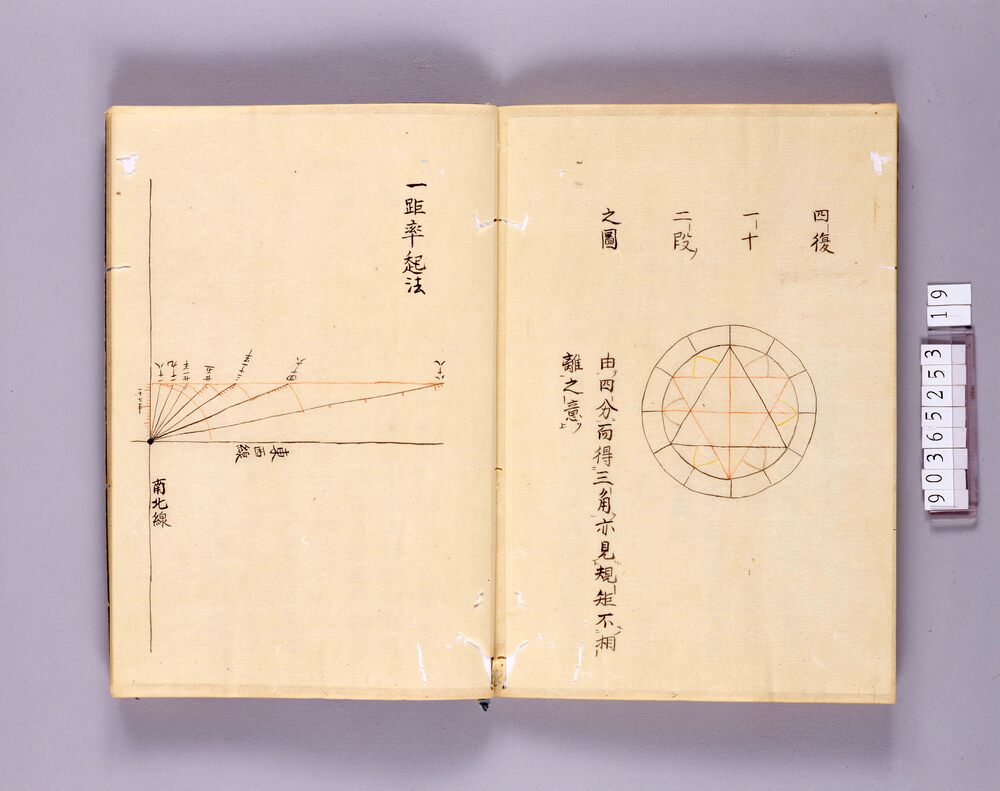 四復
一十
二段
之圖
由四分而得三角亦見規矩不相
離之意
一距率起法
東西線
南北線
八十八
四十六
19
90365253